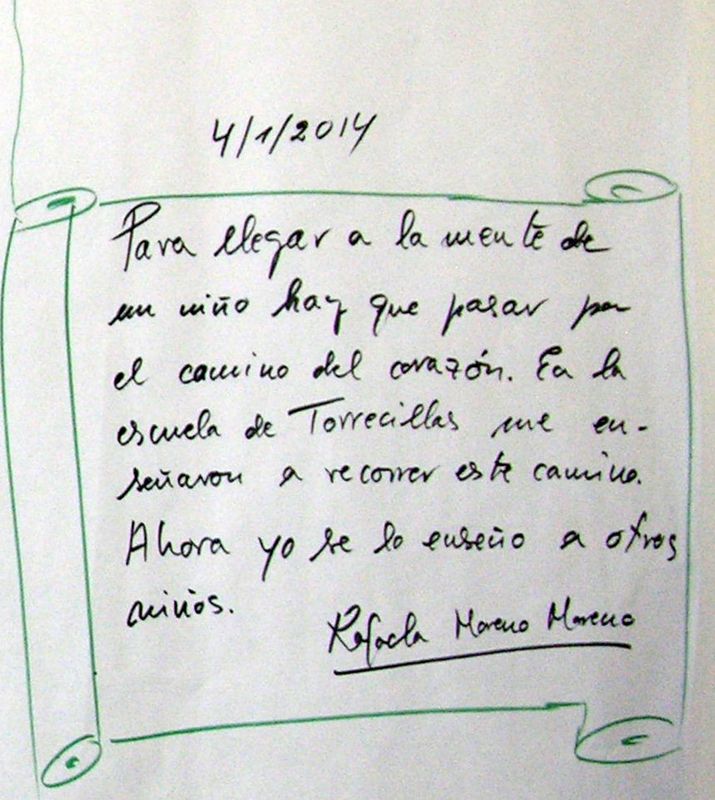 4/1/2014
Para llegar a la mente de
un niño hay que pasar por
el camino del corazón. En la
escuela de Torrecillas me en-
señaron a recorrer este camino.
Ahora yo se lo enseño a otros
niños.
Rafaela Moreno Moreno